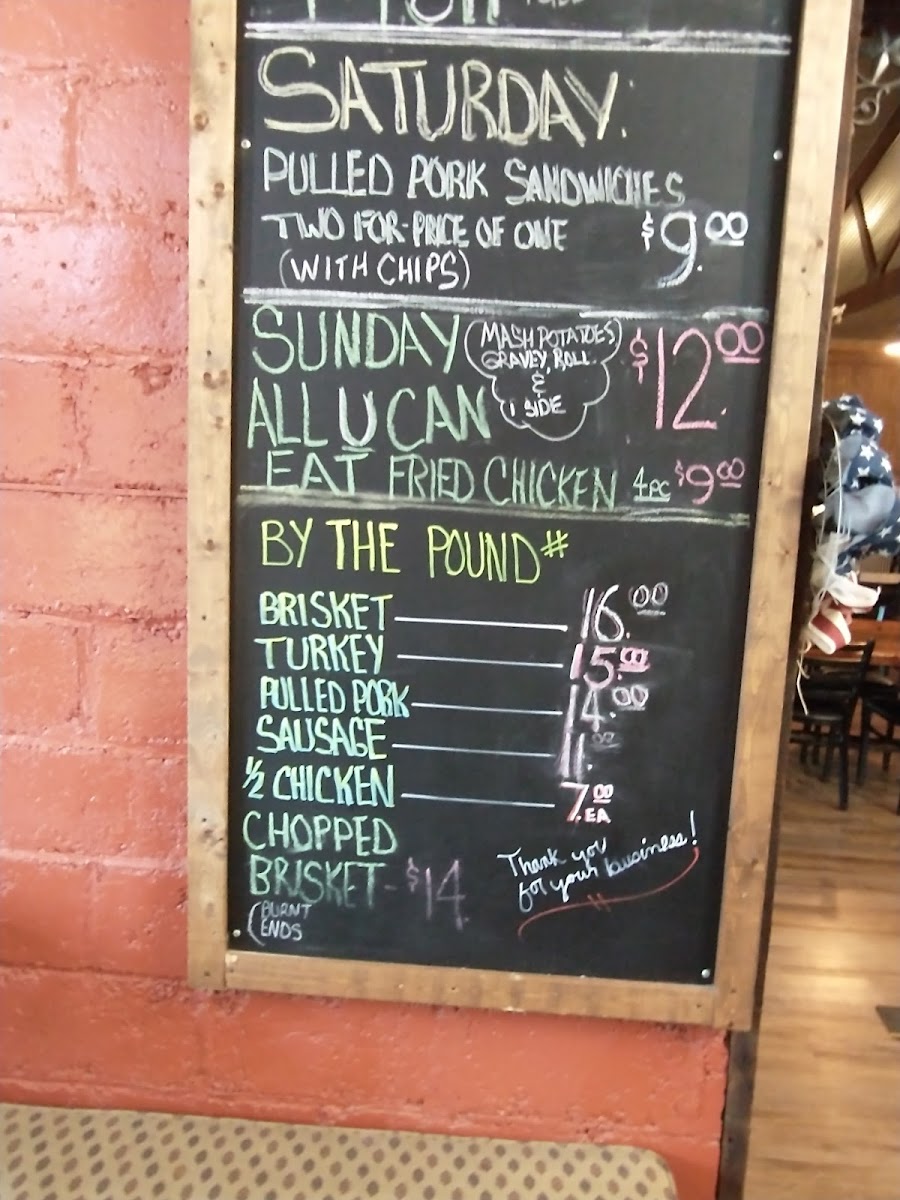 SATURDAY:
PULLED PORK SANDWICHES
TWO FOR-PRICE OF ONE $9.00
(WITH CHIPS)
SUNDAY (MASH POTATOES) $12.00
GRAVEY, ROLL.
&
1 SIDE
ALL U CAN
EAT FRIED CHICKEN 4pc $9.00
BY THE POUND#
BRISKET — 16.00
TURKEY — 15.00
PULLED PORK — 14.00
SAUSAGE — 11.00
1/2 CHICKEN — 7.00 EA
CHOPPED
BRISKET - $14.
(BURNT
ENDS
Thank you
for your business!